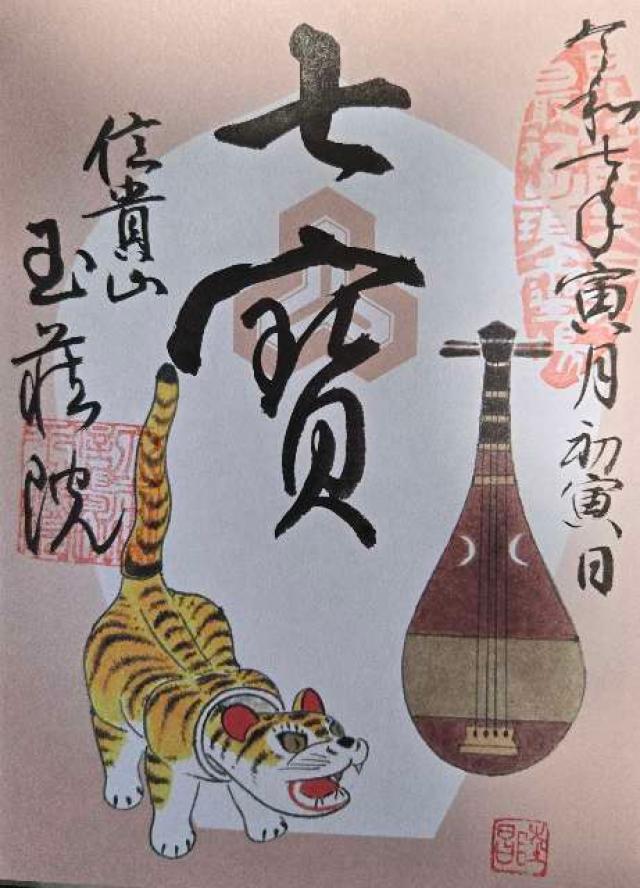 令和七年寅月初寅日
七寳
信貴山
玉蔵院